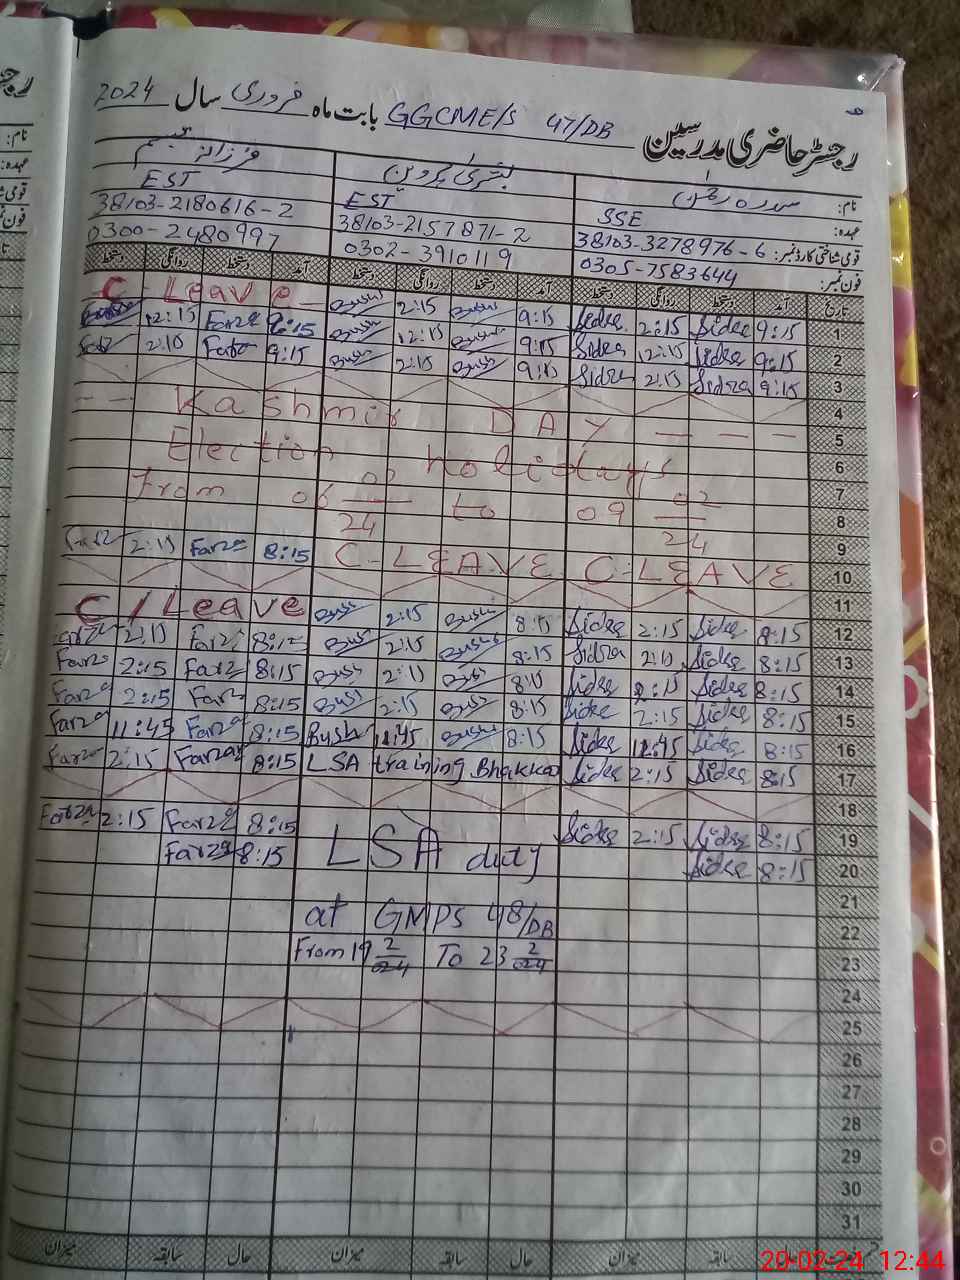 رجسٹر حاضری مدرسین GGCME/S 47/DB بابت ماہ فروری سال 2024
نام: سدرہ رحمٰن بشریٰ پروین فرزانہ تبسم
عہدہ: SSE EST EST
قومی شناختی کارڈ نمبر: 38103-3278976-6 38103-2157871-2 38103-2180616-2
فون نمبر: 0305-7583644 0302-3910119 0300-2480997
تاریخ آمد دستخط روانگی دستخط آمد دستخط روانگی دستخط آمد دستخط روانگی دستخط
1 9:15 Sidra 2:15 Sidra 9:15 Bush 2:15 Bush C Leave
2 9:15 Sidra 12:15 Sidra 9:15 Bush 12:15 Bush 8:15 Farza 12:15
3 9:15 Sidra 2:15 Sidra 9:15 Bush 2:15 Bush 9:15 Farz 2:15 Farz
4
5 Kashmir DAY
6 Election holidays
7 From 06 02/24 to 09 02/24
8
9
10 C-LEAVE C-LEAVE 8:15 Farza 2:15 Farz
11
12 8:15 Sidra 2:15 Sidra 8:15 Bush 2:15 Bush C/Leave
13 8:15 Sidra 2:15 Sidra 8:15 Bush 2:15 Bush 8:15 Farz 2:15 Farz
14 8:15 Sidra 2:15 Sidra 8:15 Bush 2:15 Bush 8:15 Farz 2:15 Farza
15 8:15 Sidra 2:15 Sidra 8:15 Bush 2:15 Bush 8:15 Farz 2:15 Farza
16 8:15 Sidra 11:45 Sidra 8:15 Bush 11:45 Bush 8:15 Farza 11:45 Farza
17 8:15 Sidra 2:15 Sidra LSA training Bhakkar 8:15 Farzan 2:15 Farza
18
19 8:15 Sidra 2:15 Sidra LSA duty 8:15 Farza 2:15 Farza
20 8:15 Sidra 8:15 Farza
21
22 at GMPS 48/DB
23 From 19 2/024 To 23 2/024
24
25
26
27
28
29
30
31
حال سابقہ میزان حال سابقہ میزان حال سابقہ میزان
20-02-24 12:44